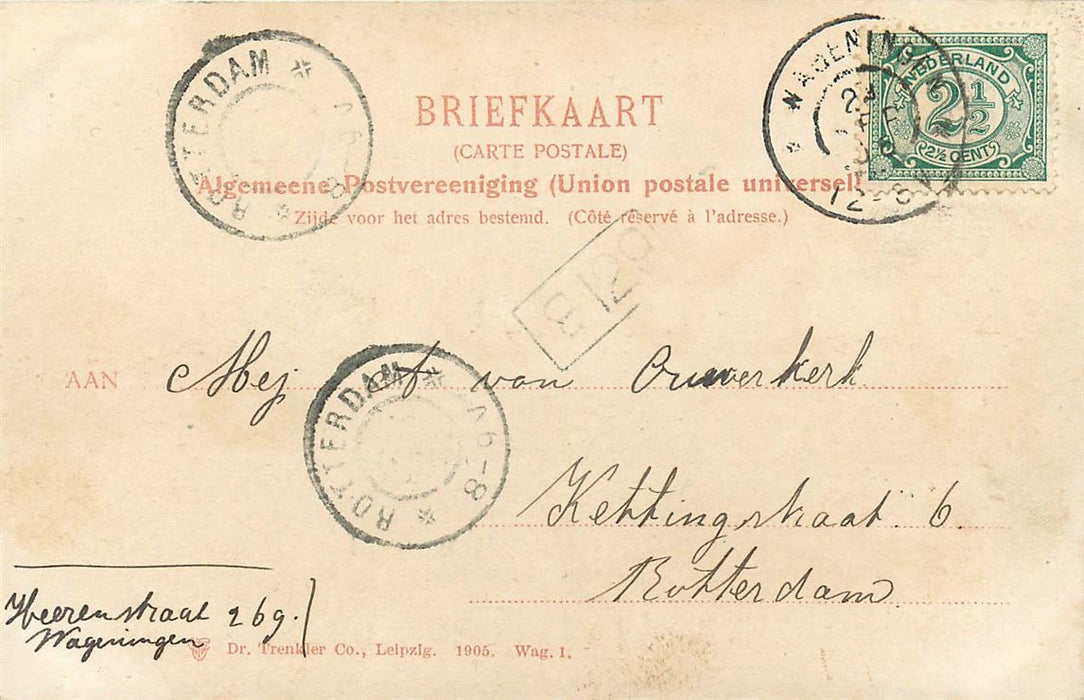 BRIEFKAART
(CARTE POSTALE)
Algemeene Postvereeniging (Union postale universelle)
Zijde voor het adres bestemd. (Côté réservé à l'adresse.)
NEDERLAND
2½
2½ CENT
WAGENINGEN
12-8V
ROTTERDAM
6-8
AAN Mej van Ouwerkerk
ROTTERDAM
6-8
Kettingstraat 6.
Rotterdam
Heerenstraat 269.
Wageningen
Dr. Trenkler Co., Leipzig. 1905. Wag. 1.